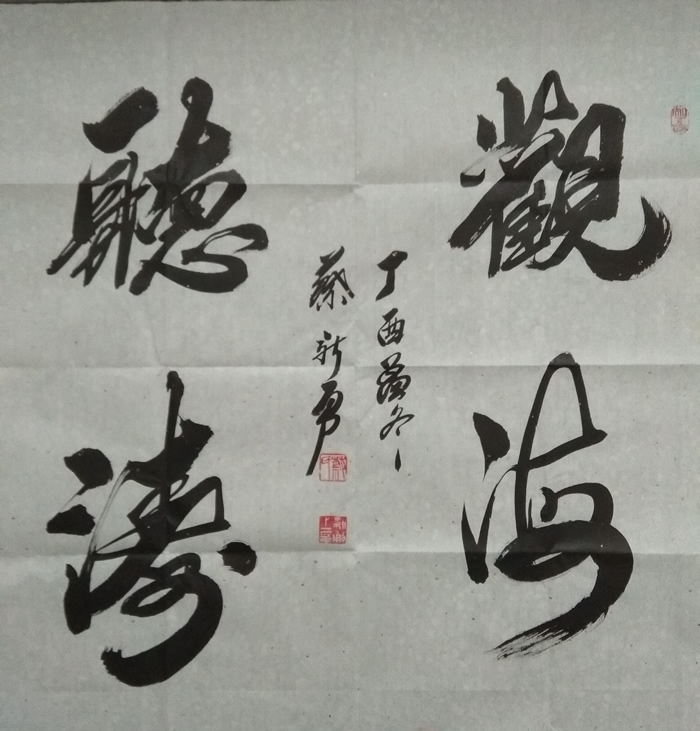 觀海
聽濤
丁酉孟冬
蔡新勇